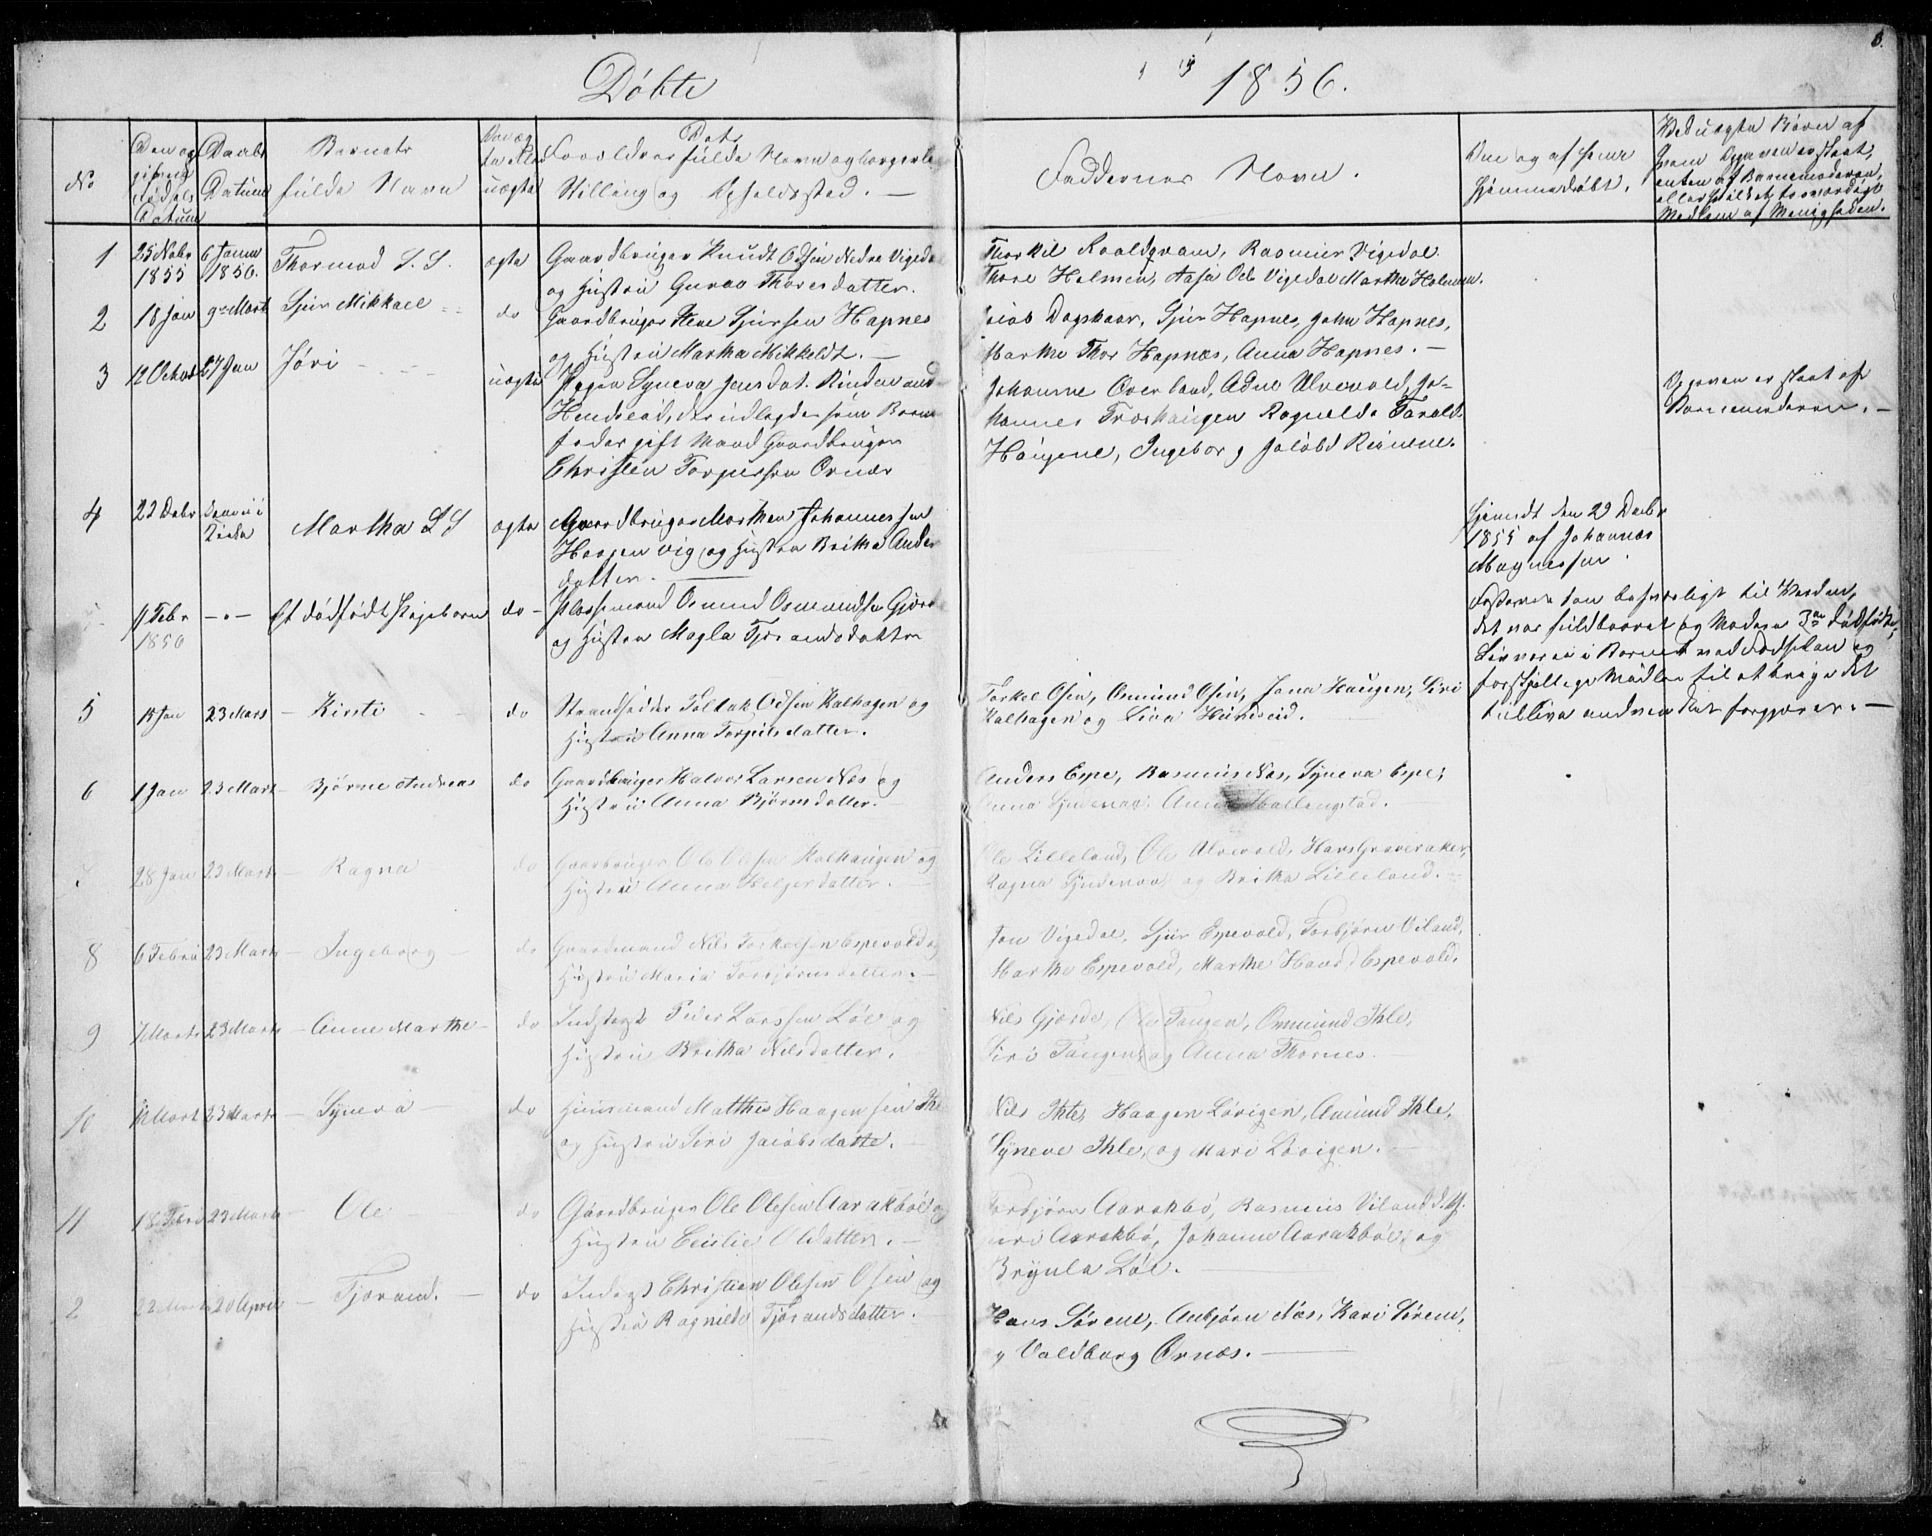 Döbte
1856.
No
Den og
Daabs
Datum
Barnets
fulde Navn
uægta
Dets
Forældres fulde Navn og borgerlige
Stilling og Opholdssted. —
Faddernes Navn.
Om og af hvem
hjemmedøbt.
Medlem af Menigheden.
1
25 Nobr
1855
6 Janu
1856.
Thormod S. S.
ægta
Gaardbruger Knudt Odsen Nedre Vigedal
og Hustru Guroe Thoresdatter.
Thorkil Roaldqvam, Rasmus Vigedal
Thore Holmen, Aasa Ols Vigedal Martha Holmen.
2
18 Jan
9de Mart
Sjur Mikkael
do
Gaardbruger Stene Sjursen Hapnes
og Hustru Martha Mikkeldt. —
Jacob Dagskaar, Sjur Hapnes, John Hapnes,
Marthe Thor Hapnæs, Anna Hapnes. —
3
12 Octobr
27 Jan
Jøri
uægta
Pigen Syneva Jensdat. Rinden
Hendeland, der udlagde som Barne
fader gift Mand Gaardbruger
Christen Torgersen Ornæs
Johanne Overland, Adne Ulvevold, Jo-
hannes Træshaugen Ragnilde Tarald
Haugene, Ingeborg Jakobd Rinnene.
Opgaven er skeet af
Barnemoderen. —
4
22 Debr
Martha S S
ægta
Gaardbruger Morthen Johannessen
Haagenvig og Hustru Britha Anders
datter.
hjemdt den 29 Decbr
1855 af Johannes
Magnessen.
11 Febr
1856
Et dødfødt Pigebarn
do
Pladsemand Osmund Osmundsen Gjerde
og Hustru Magla Tjerandsdatter
det var fuldbaaret og Moderen 3die dødfødte,
Liv var ei i Barnet ved Fødselen og
forskjellige Midler til at bringe det
tillive anvendtes forgjæves. —
5
15 Jan
23 Mars
Kirsti
do
Strandsidder Tollak Odsen Kalhagen og
Hustru Anna Torgilsdatter.
Torkel Osen, Osmund Osen, Jona Haugen, Siri
Kalhagen og Siva Hundseid.
6
1 Jan
23 Mart
Bjørne Andreas
do
Gaardbruger Halvor Larsen Næs og
Hustru Anna Bjørnsdatter.
Anders Espe, Rasmus Næs, Syneva Espe,
Anna Syndenaae, Anna Hallingstad.
7
28 Jan
23 Marts
Ragna
do
Gaardbruger Ole Olesen Kalhaugen og
Hustru Anna Helgesdatter.
Ole Lilleland, Ole Ulvevold, Hans Graveraker,
Ragna Syndenaa og Britha Lilleland.
8
6 Febru
23 Marts
Ingeborg
do
Gaardmand Nils Torkelsen Espevold og
Hustru Maria Torbjørnsdatter.
Jon Vigedal, Sjur Espevold, Torbjørn Viland,
Marthe Espevold, Marthe Hansd Espevold.
9
7 Marts
23 Marts
Anne Marthe
do
Indsteget Peder Larssen Løe og
Hustru Britha Nilsdatter.
Nils Gjerde, Ole Tangen, Ommund Ihle,
Siri Tangen, og Anna Thornes.
10
12 Mart
23 Marts
Syneva
do
Huusmand Matthis Haagensen Ihle
og Hustru Siri Jacobsdatte.
Nils Ihle, Haagen Løvigen, Amund Ihle,
Syneve Ihle, og Mari Løvigen.
11
18 Febru
23 Marts
Ole
do
Gaardbruger Ole Olesen Aarakbøe og
Hustru Cecilie Olsdatter.
Torbjørn Aarakbø, Rasmus Viland d. y.
Siri Aarakbø, Johanna Aarakbøe, og
Brynla Løe.
2
22 Marts
20 April
Tjærand.
do
Indsgt Christian Olesen Osen og
Hustru Ragnilde Tjørandsdatter.
Hans Sørene, Anbjørn Næs, Kari Sørene,
og Valdborg Ornæs.